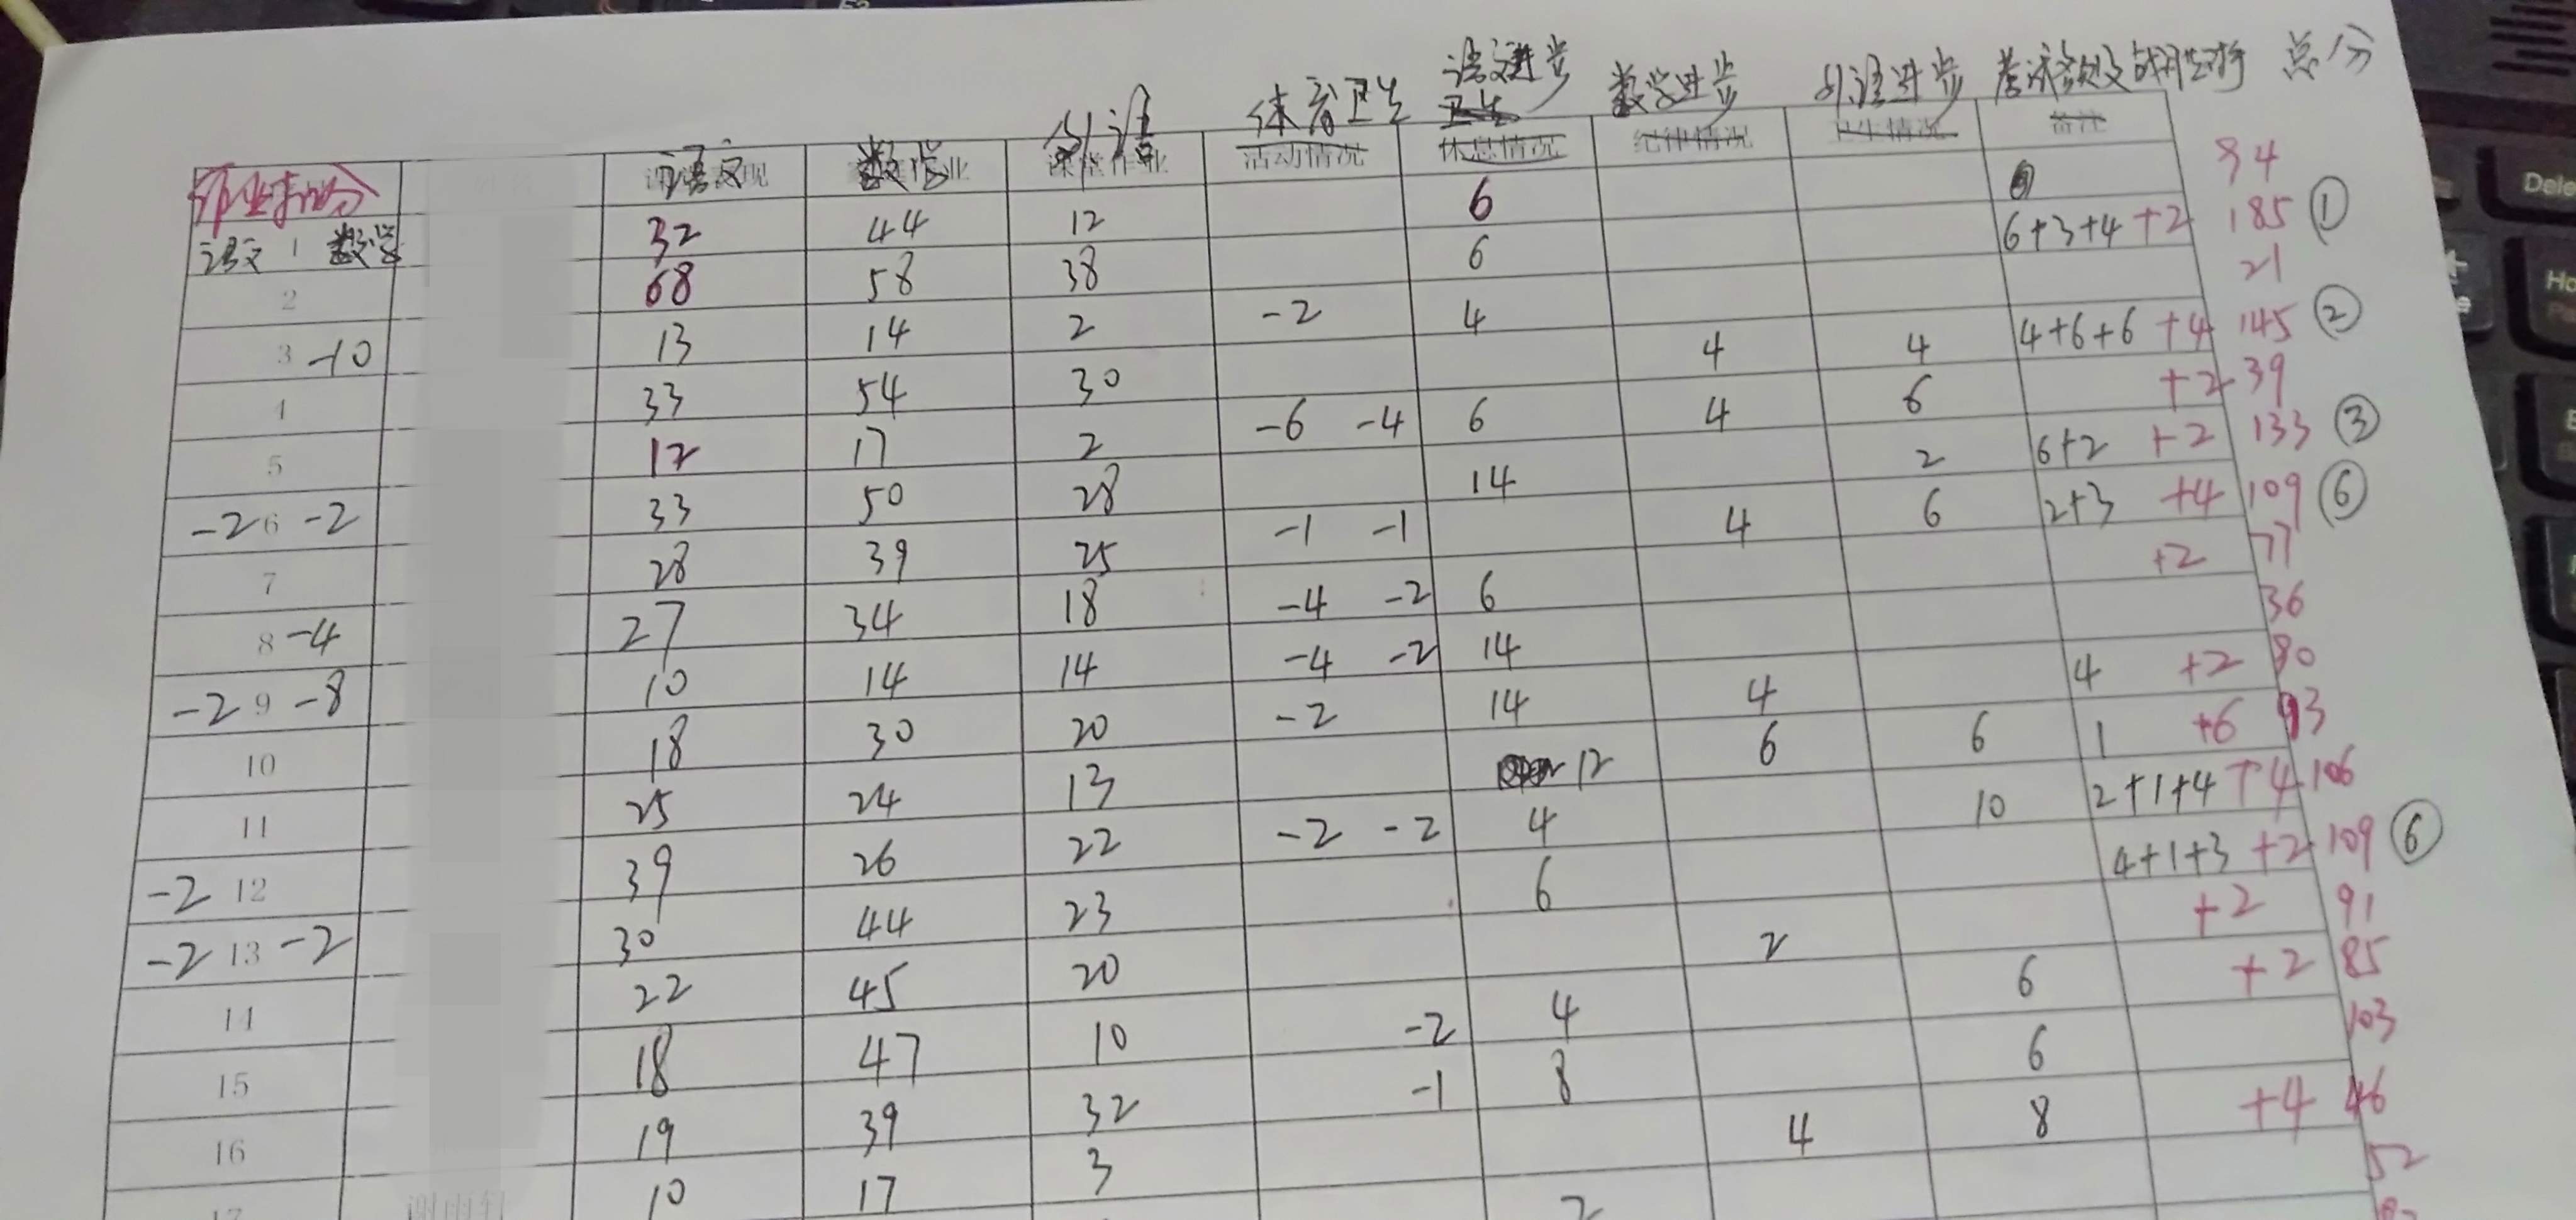 语文进步 数学进步 外语进步 总分
语文 数学 外语 体育卫生
作业扣分
活动情况 休息情况 纪律情况 卫生情况 备注
语文 1 数学 32 44 12 6 94
2 68 58 38 6 6+3+4 +2 185 ①
3 -10 13 14 2 -2 4 21
4 33 54 30 4 4 4+6+6 +4 145 ②
5 12 17 2 -6 -4 6 4 6 +2 39
-2 6 -2 33 50 28 14 2 6+2 +2 133 ③
7 28 39 25 -1 -1 4 6 2+3 +4 109 ⑥
8 -4 27 34 18 -4 -2 6 +2 77
-2 9 -8 10 14 14 -4 -2 14 36
10 18 30 20 -2 14 4 4 +2 90
11 25 24 13 12 6 6 1 +6 93
-2 12 39 26 22 -2 -2 4 10 2+1+4 +4 106
-2 13 -2 30 44 23 6 4+1+3 +2 109 ⑥
14 22 45 20 2 +2 91
15 18 47 10 -2 4 6 +2 85
16 19 39 32 -1 8 6 103
17 谢雨轩 10 17 3 4 8 +4 46
2 52